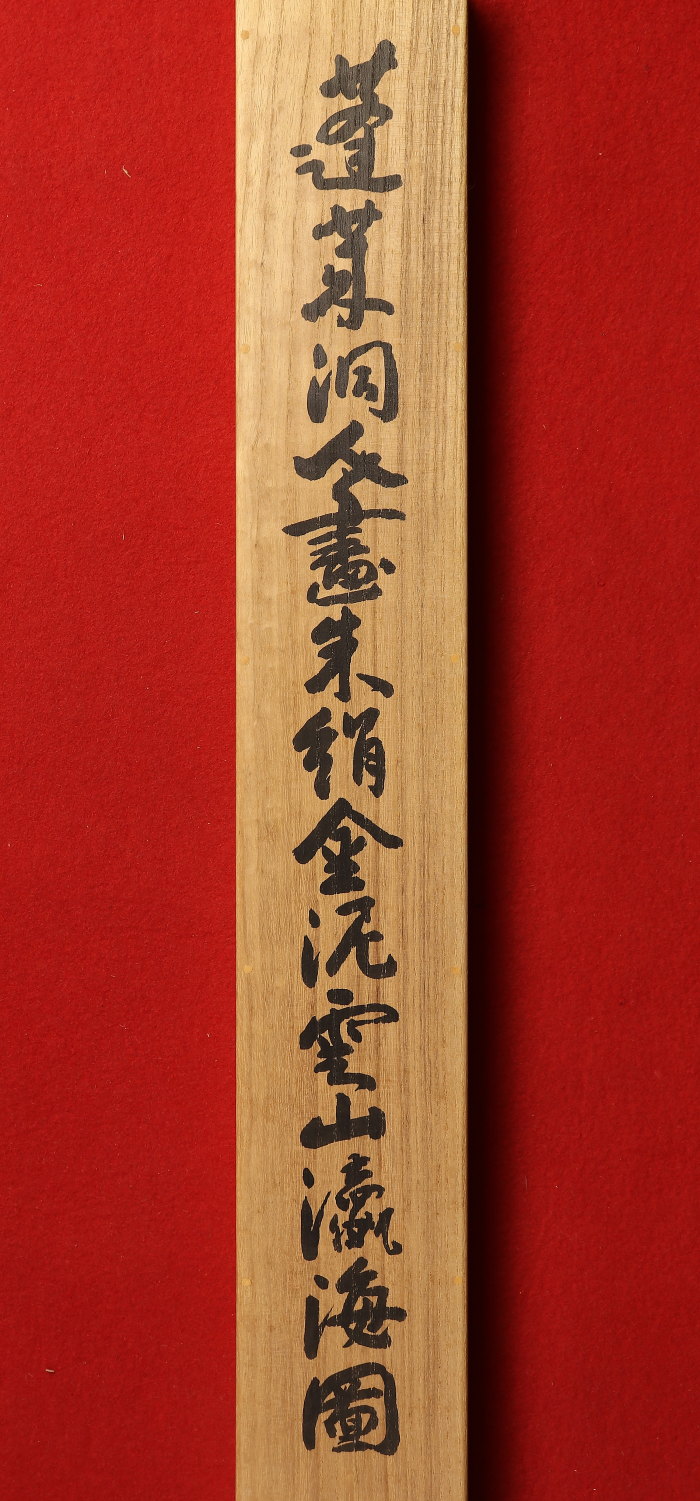 蓬莱洞畫朱絹金泥雲山瀛海圖